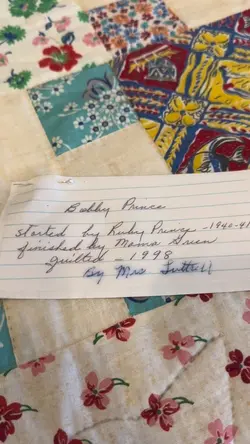 Bobby Prince
Started by Ruby Prince - 1940-41
finished by Mama Green
Quilted - 1998
By Mrs